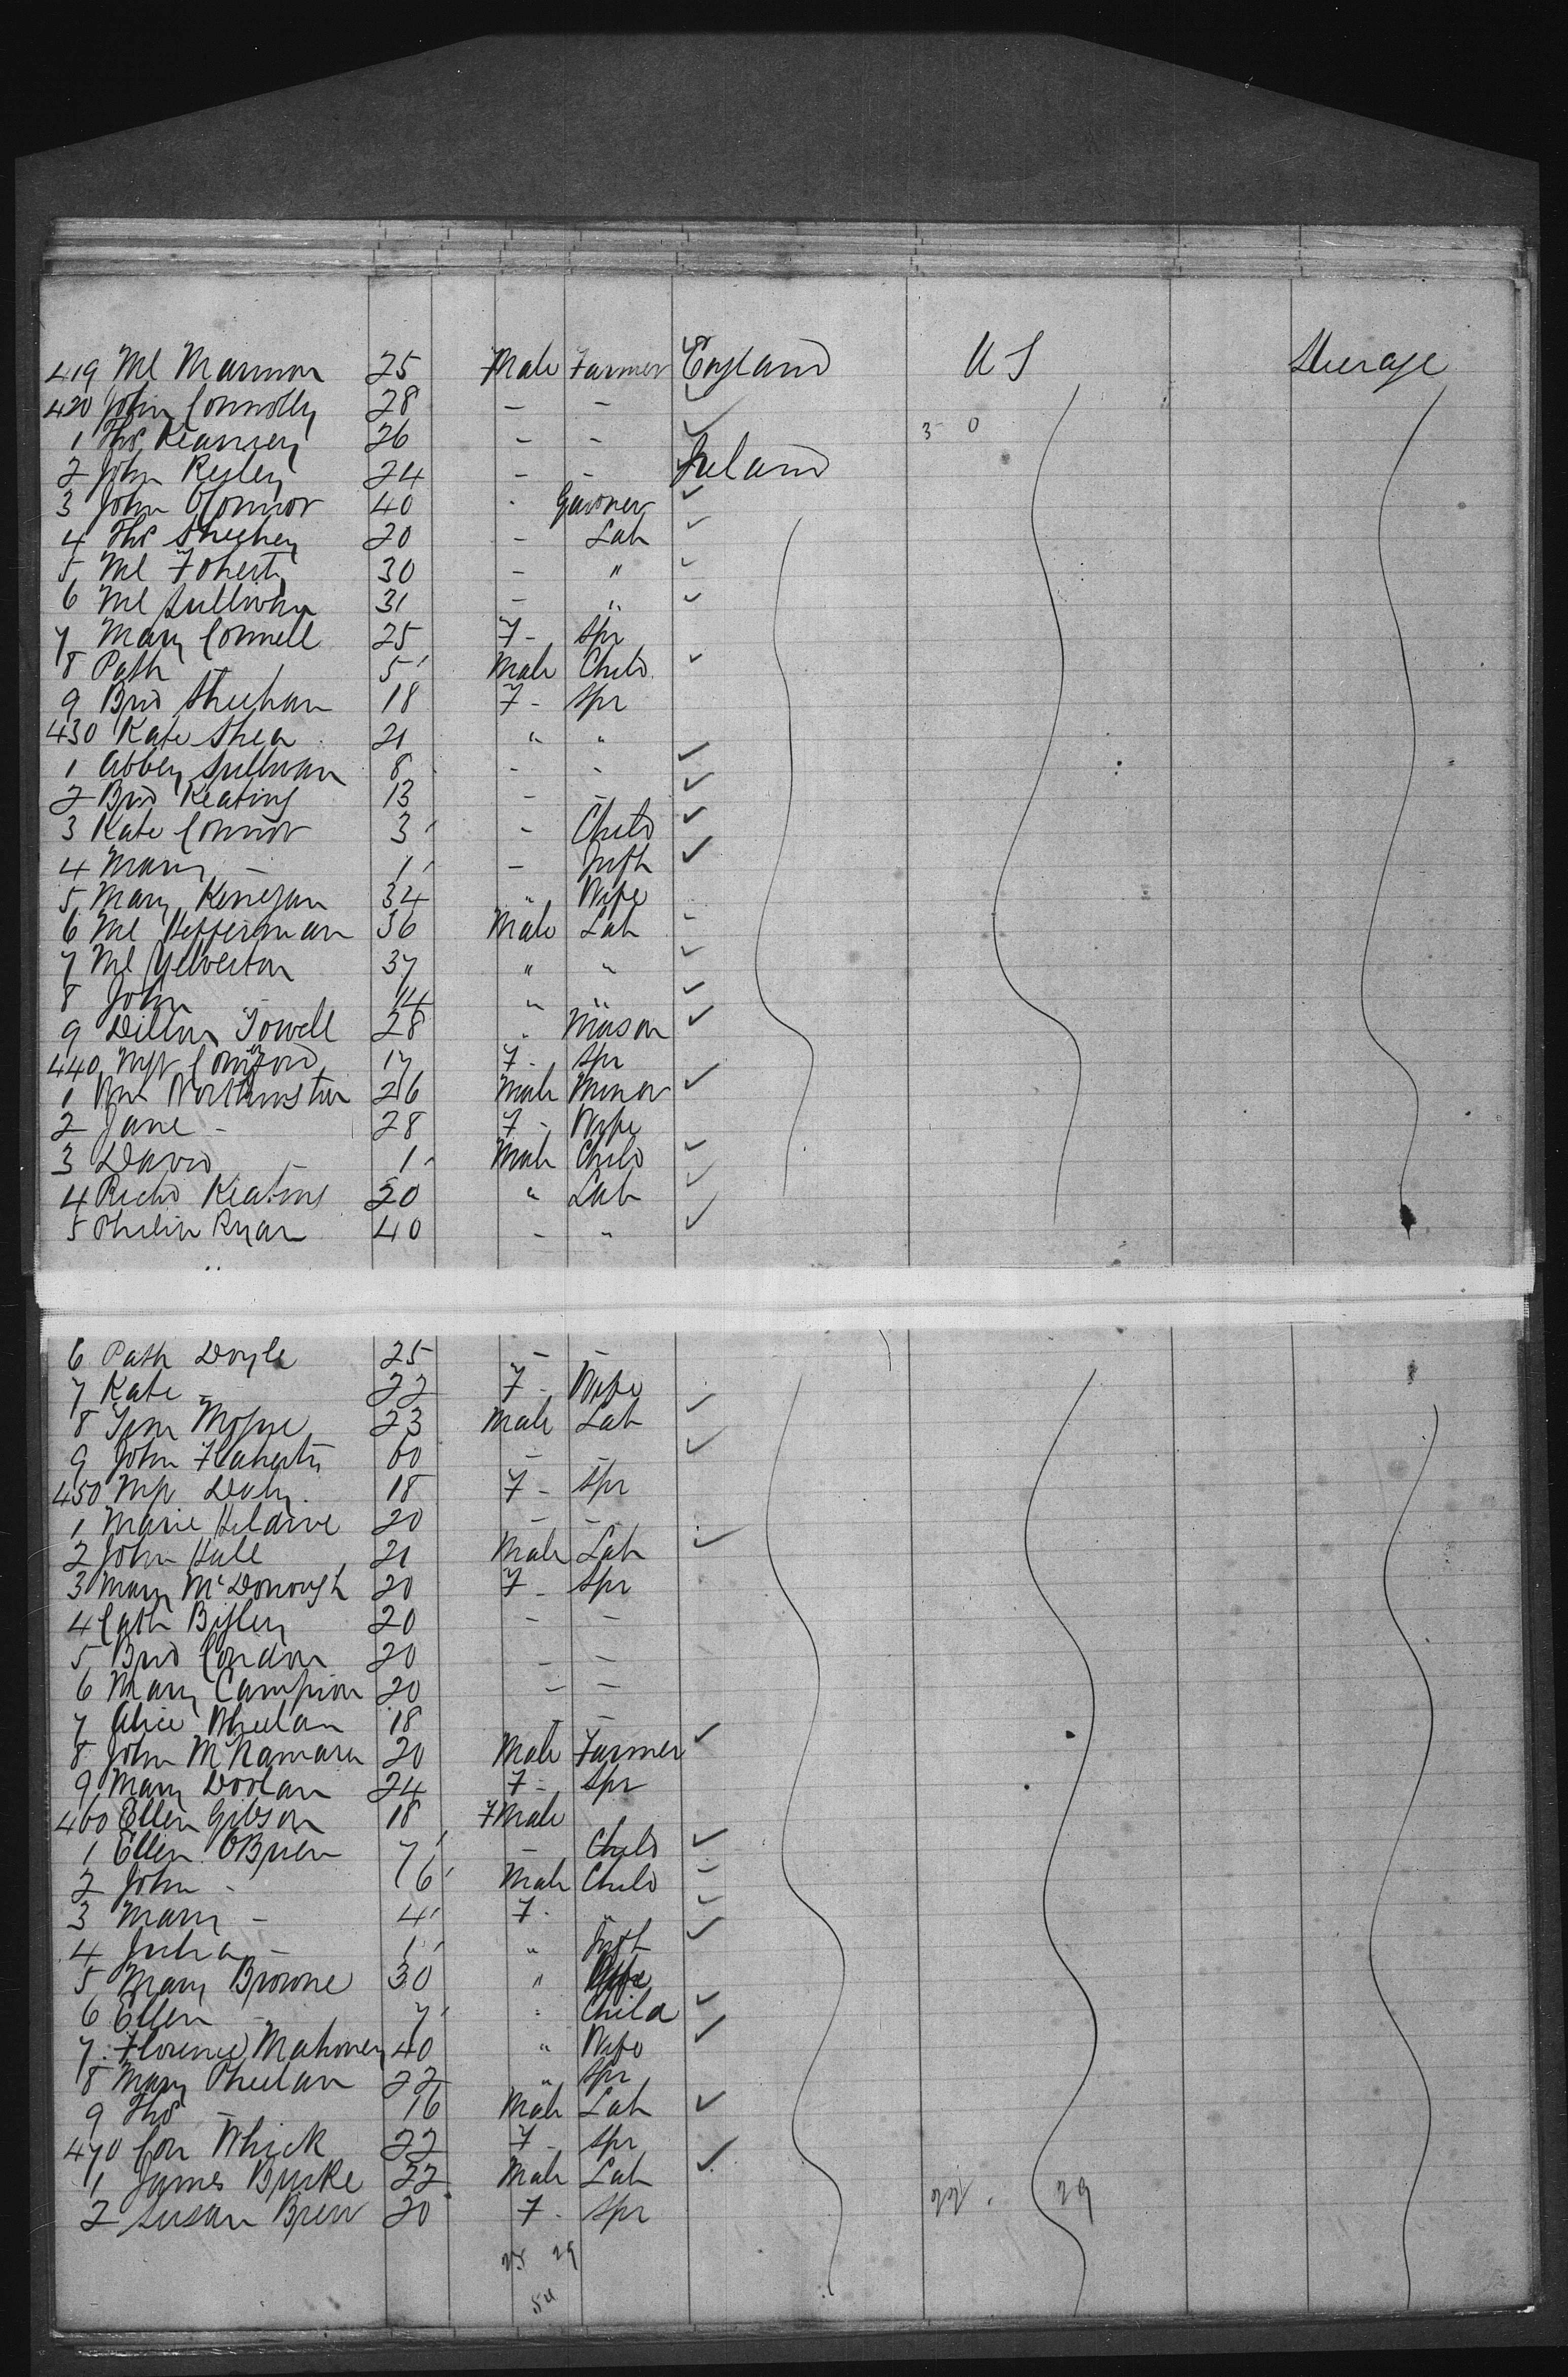 419 Ml Marmon 25 Male Farmer England U S Steerage
420 John Connolly 28 — —
1 Thos Kearney 26 — — 3 0
2 John Regley 24 — — Ireland
3 John OConnor 40 " Gardner
4 Thos Sheehey 20 — Lab
5 Ml Foherty 30 — "
6 Ml Sullivan 31 — "
7 Mary Connell 25 F — Spr
8 Patk — 5 Male Child
9 Brid Sheehan 18 F — Spr
430 Kate Shea 21 " "
1 Abbey Sullivan 8 — —
2 Brid Keating 13 — —
3 Kate Connor 3 — Child
4 Mary — 1 — Inft
5 Mary Kerregan 34 " Wife
6 Ml Hefferman 36 Male Lab
7 Ml Yelverton 37 " "
8 John — 14 " "
9 Dillon Powell 28 " Mason
440 Mgt Comford 17 F — Spr
1 Wm 26 Male Minor
2 Jane — 28 F — Wife
3 David — 1 Male Child
4 Richd Keating 20 " Lab
5 Philip Ryan 40 — "
6 Patk Doyle 25 — —
7 Kate — 22 F — Wife
8 Tim 23 Male Lab
9 John Flaherty 60 — —
450 Mgt Daly 18 F — Spr
1 Marie 20 — —
2 John Hall 21 Male Lab
3 Mary McDonough 20 F — Spr
4 Cath Bigley 20 — —
5 Brid Condon 20 — —
6 Mary Campion 20 — —
7 Alice Wheelan 18 — —
8 John McNamara 20 Male Farmer
9 Mary Doolan 24 F — Spr
460 Ellen Gibson 18 FMale
1 Ellen OBrien 7 — Child
2 John — 6 Male Child
3 Mary — 4 F — "
4 Julia — 1 " Inft
5 Mary Browne 30 " Wife
6 Ellen — 7 " Child
7 Florence Mahoney 40 " Wife
8 Mary Pheelan 22 " Spr
9 Thos — 16 Male Lab
470 Con 22 F — Spr
1 James Burke 22 Male Lab
2 Susan Brew 20 F — Spr 22 29
25 29
54